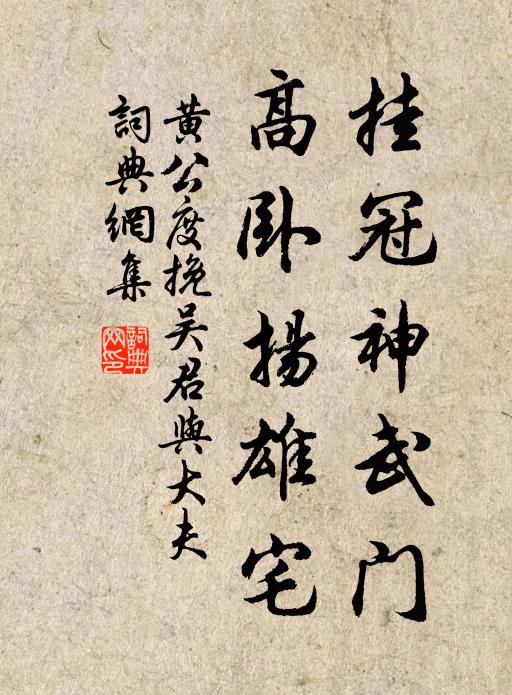 挂冠神武門
高卧揚雄宅
黄公度挽吴君與大夫
詞典網集
詞典网印